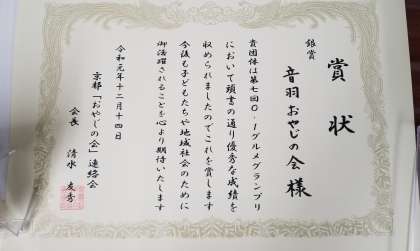 賞状
銀賞
音羽おやじの会様
貴団体は第七回O-1グルメグランプリ
において頭書の通り優秀な成績を
収められましたのでこれを賞します
今後も子どもたちや地域社会のために
御活躍されることを心より期待いたします
令和元年十二月十四日
京都「おやじの会」連絡会
会長 清水 友秀